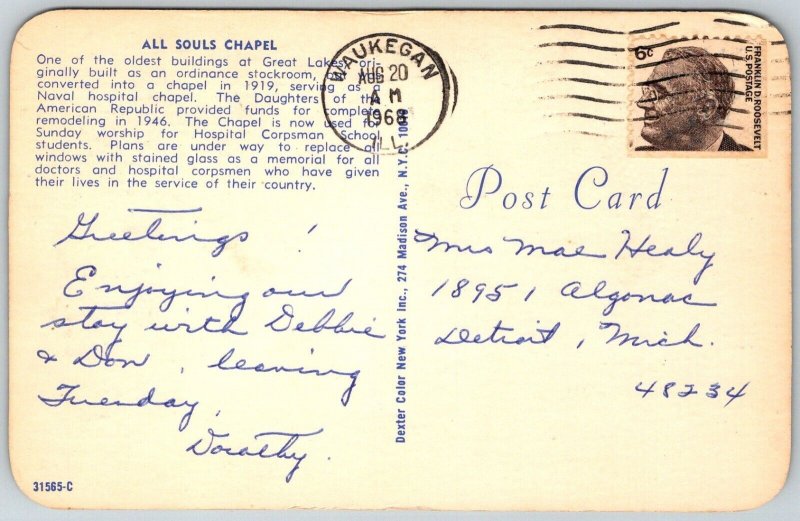 ALL SOULS CHAPEL
One of the oldest buildings at Great Lakes, ori-
ginally built as an ordinance stockroom,
converted into a chapel in 1919, serving as a
Naval hospital chapel. The Daughters of the
American Republic provided funds for complete
remodeling in 1946. The Chapel is now used for
Sunday worship for Hospital Corpsman School
students. Plans are under way to replace all
windows with stained glass as a memorial for all
doctors and hospital corpsmen who have given
their lives in the service of their country.
Greetings !
Enjoying our
stay with Debbie
& Don, leaving
Tuesday,
Dorothy.
31565-C
Dexter Color New York Inc., 274 Madison Ave., N.Y.C.
WAUKEGAN
AUG 20
AM
1968
ILL.
6c
FRANKLIN D. ROOSEVELT
U.S. POSTAGE
Post Card
Mrs Mae Healy
18951 Algonac
Detroit, Mich.
48234